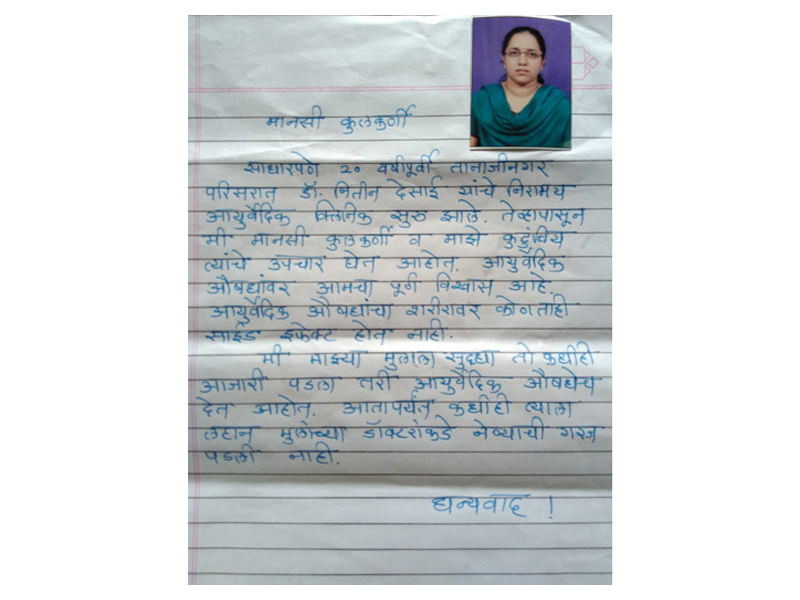 मानसी कुलकर्णी
साधारपणे २० वर्षापूर्वी तानाजीनगर
परिसरात डॉ. नितीन देसाई यांचे निरामय
आयुर्वेदिक क्लिनिक सुरु झाले. तेव्हापासून
मी मानसी कुलकर्णी व माझे कुटुंबिय
त्यांचे उपचार घेत आहोत. आयुर्वेदिक
औषधांवर आमचा पूर्ण विश्वास आहे.
आयुर्वेदिक औषधांचा शरीरावर कोणताही
साईड इफेक्ट होत नाही.
मी माझ्या मुलाला सुद्धा तो कधीही
आजारी पडला तरी आयुर्वेदिक औषधेच
देत आहोत. आतापर्यंत कधीही त्याला
लहान मुलांच्या डॉक्टरांकडे नेण्याची गरज
पडली नाही.
धन्यवाद !